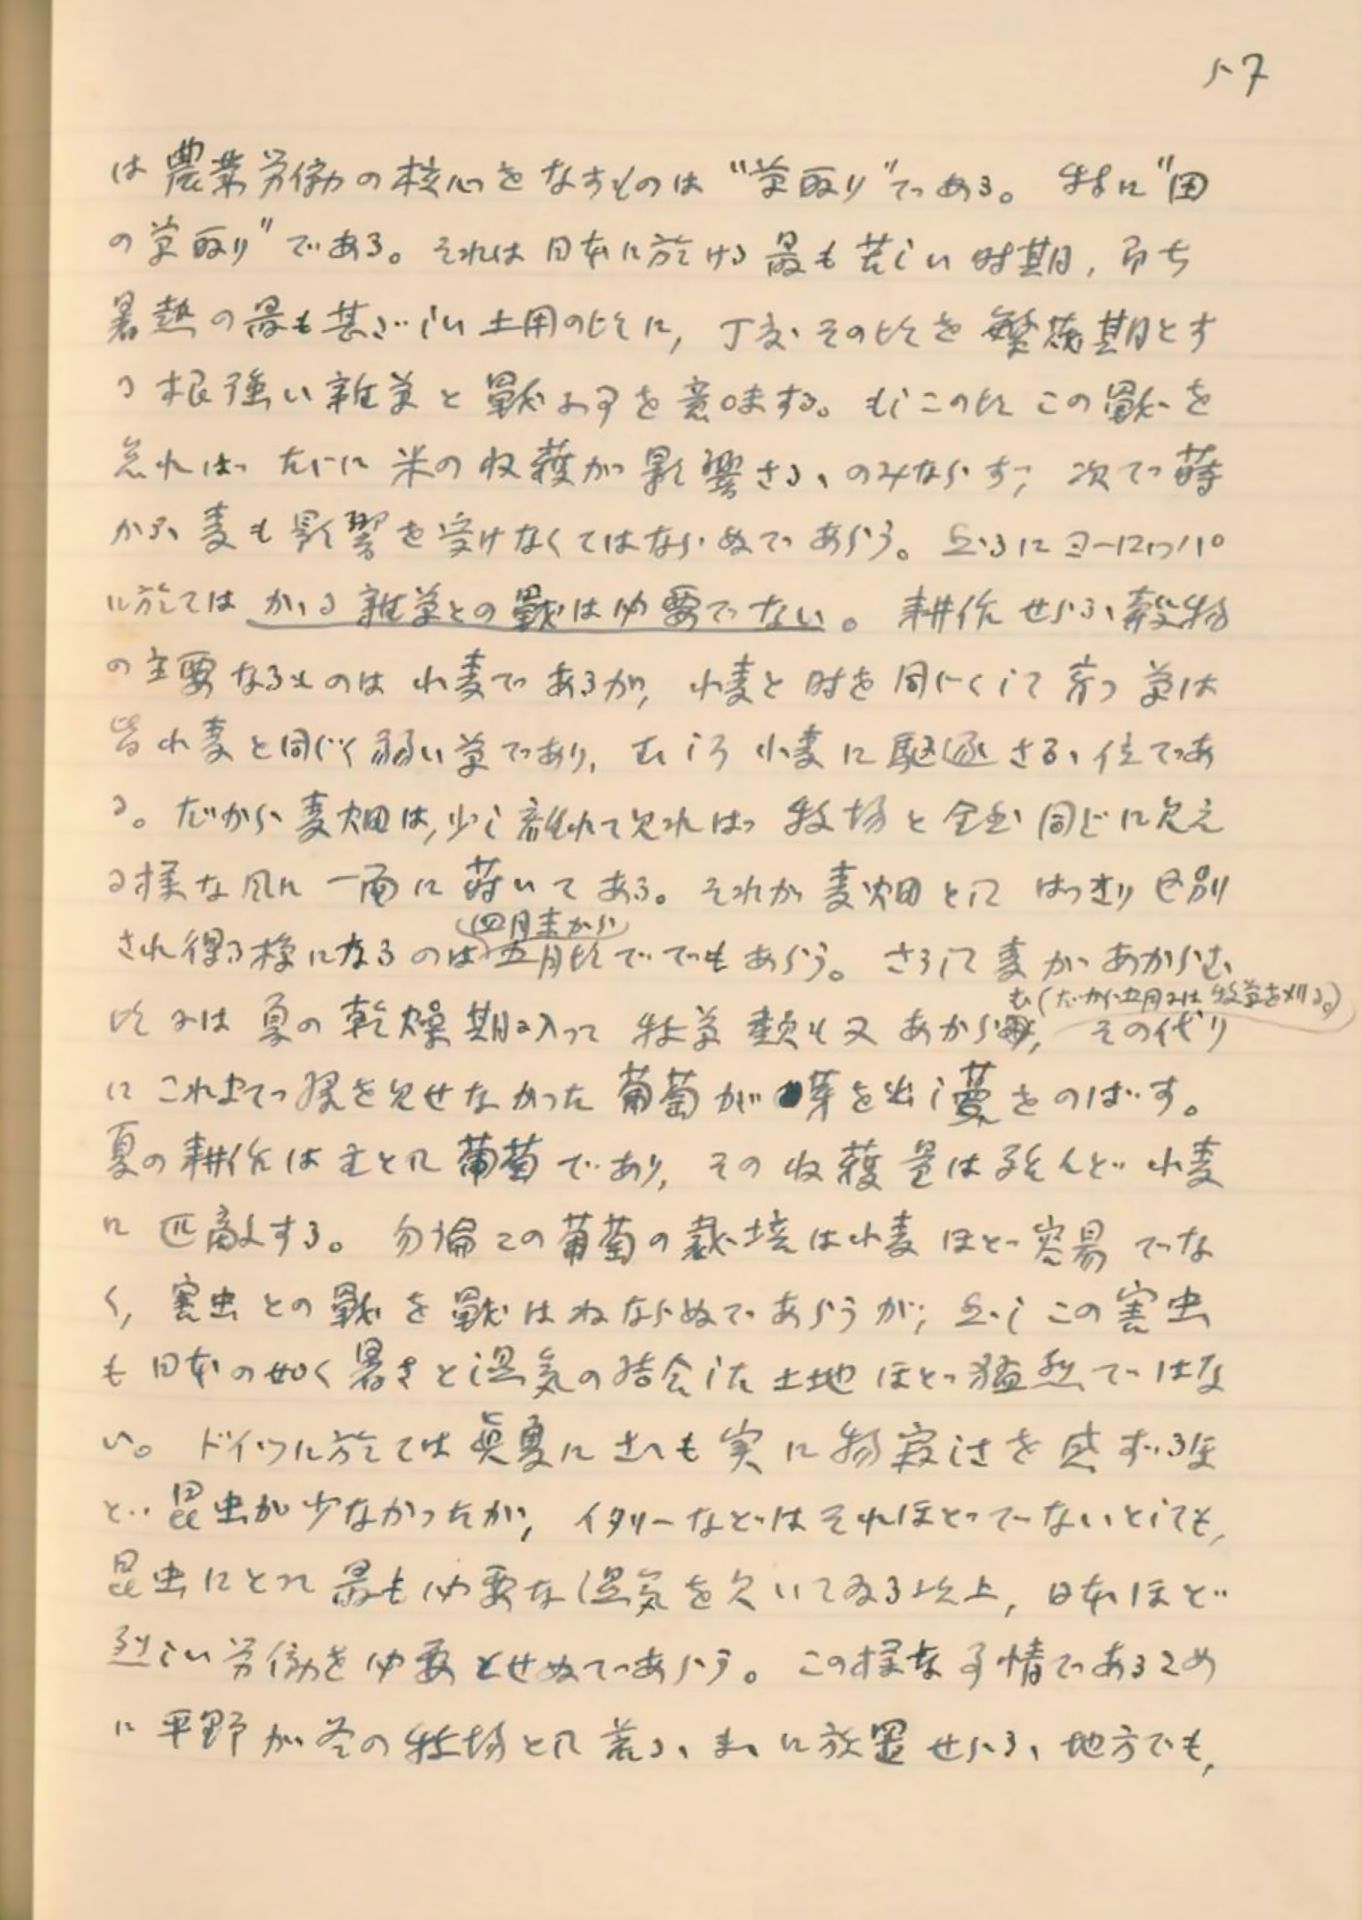 57
は農業労働の核心をなすものは“草取り”である。特に“田
の草取り”である。それは日本に於ける最も苦しい時期、即ち
暑熱の最も甚だしい土用の頃に、丁度その頃を繁茂期とす
る根強い雑草と戦ふ事を意味する。もしこの頃この戦を
怠れば直に米の収穫が影響さるゝのみならず、次で蒔
かるゝ麦も影響を受けなくてはならぬであらう。然るにヨーロッパ
に於ては かゝる雑草との戦は必要でない。耕作せらるゝ穀物
の主要なるものは小麦であるが、小麦と時を同じくして育つ草は
皆小麦と同じく弱い草であり、むしろ小麦に駆逐さるゝ位であ
る。だから麦畑は、少し離れて見れば牧場と全然同じに見え
る様な風に一面に蒔いてある。それが麦畑としてはっきり区別
され得る様になるのは(四月末から)五月頃ででもあらう。さうして麦があからむ
頃には夏の乾燥期に入って牧草類も又あからむ(だから五月には牧草を刈る。)、その代り
にこれまで緑を見せなかった葡萄が芽を出し蔓をのばす。
夏の耕作は主として葡萄であり、その収穫量は殆んど小麦
に匹敵する。勿論この葡萄の栽培は小麦ほど容易でな
く、害虫との戦を戦はねならぬであらうが、然しこの害虫
も日本の如く暑さと湿気の結合した土地ほど猛烈ではな
い。ドイツに於ては真夏にさへも実に物寂しさを感ずるほ
ど昆虫が少なかったが、イタリーなどはそれほどでないとしても、
昆虫にとって最も必要な湿気を欠いてゐる以上、日本ほど
烈しい労働を必要とせぬであらう。この様な事情であるため
に平野が冬の牧場として荒るゝまゝに放置せらるゝ地方でも、